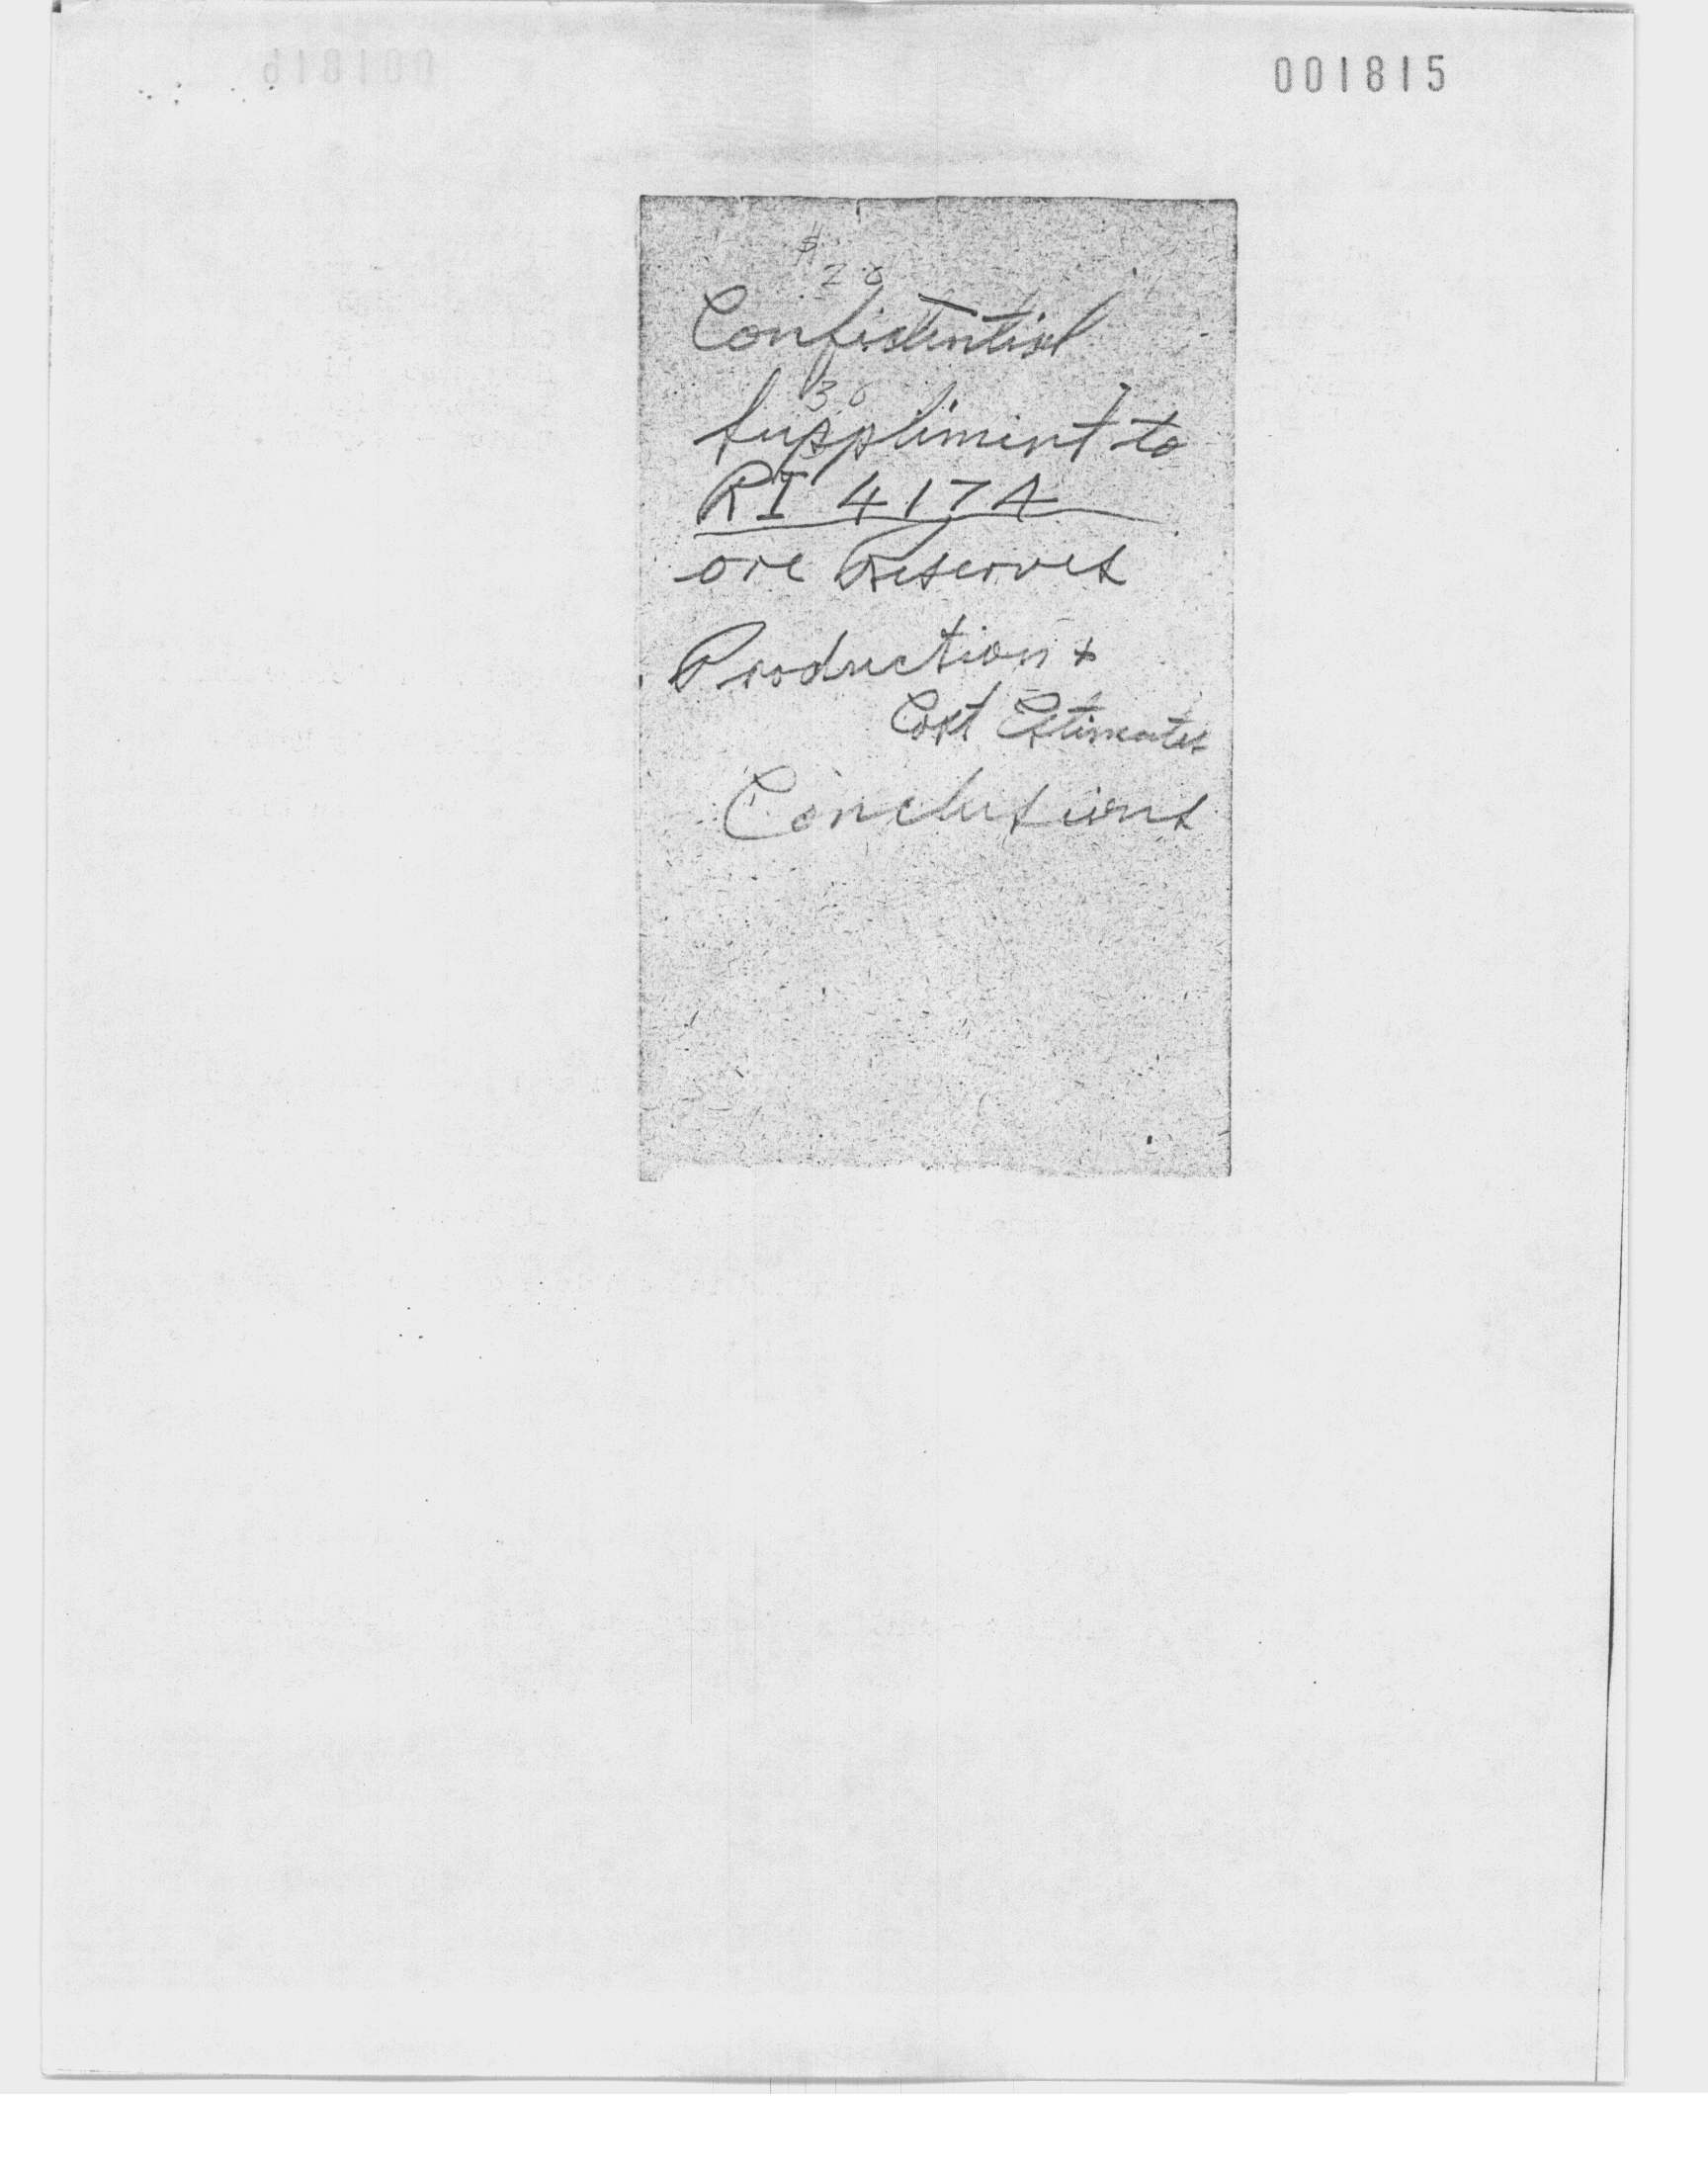 001815
$
20
Confidential
30
Suppliment to
RI 4174
ore Reserves
Production +
Cost Estimates
Conclusions